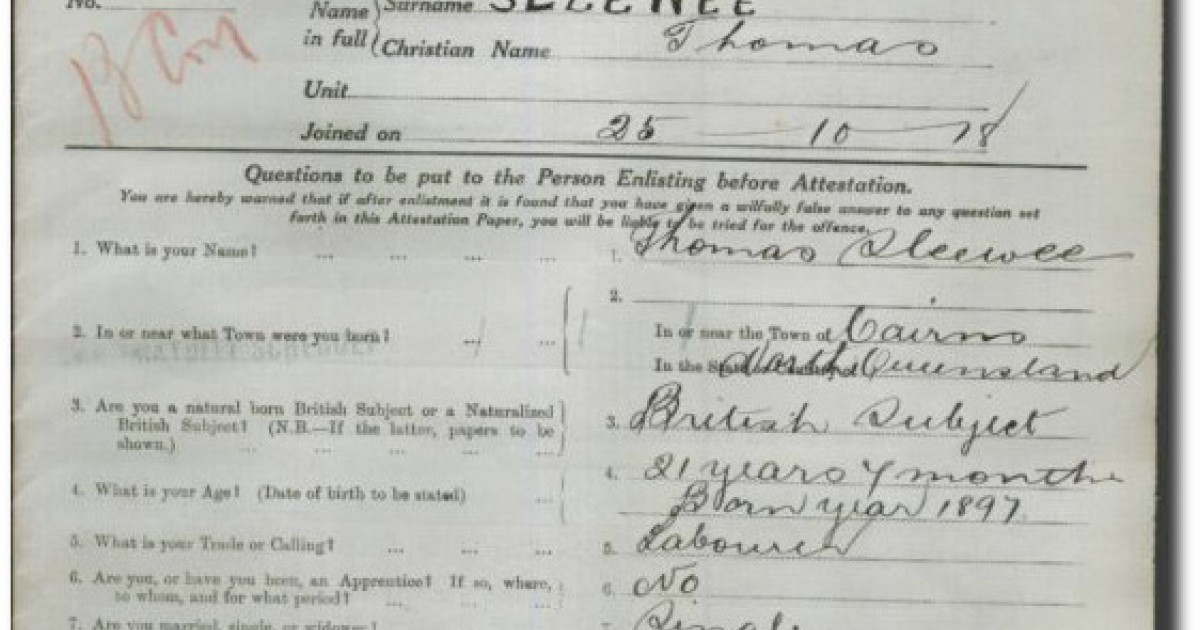 No.
Name Surname
in full Christian Name Thomas
Unit
Joined on 25 - 10 - 18
Questions to be put to the Person Enlisting before Attestation.
You are hereby warned that if after enlistment it is found that you have given a wilfully false answer to any question set
forth in this Attestation Paper, you will be liable to be tried for the offence.
1. What is your Name? ... ... ... ... 1. Thomas Sleewee
2.
2. In or near what Town were you born? ... ... In or near the Town of Cairns
In the State North Queensland
3. Are you a natural born British Subject or a Naturalized
British Subject? (N.B.—If the latter, papers to be
shown.) ... ... ... ... ... 3. British Subject
4. What is your Age? (Date of birth to be stated) ... 4. 21 years months
Born year 1897
5. What is your Trade or Calling? ... ... ... 5. Labourer
6. Are you, or have you been, an Apprentice? If so, where,
to whom, and for what period? ... ... ... 6. No
7. Are you married, single, or widower? 7. Single